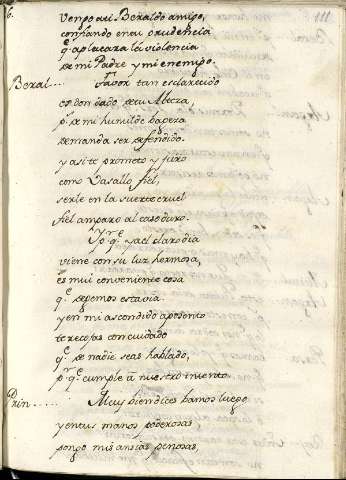 6.
111
vengo asi Beraldo amigo,
confiando en tu prudencia
q.e aplacara la violencia
de mi Padre y mi enemigo.
Beral.... Favor tan esclarecido
con don dado de tu Alteza,
p.r de mi humilde bageza
demanda ser defendido.
y asi te prometo y juro
como Vasallo fiel,
serte en la suerte cruel
fiel amparo al caso duro.
Y p.r q.e ya el claro dia
viene con su luz hermosa,
es mui conveniente cosa
q.e dejemos esta via
y en mi ascondido aposento
te recojas con cuidado
q.e de nadie seas hablado,
p.r q.e cumple a nuestro intento.
Prin..... Muy bien dices bamos luego
y en tus manos poderosas
pongo mis ansias penosas,